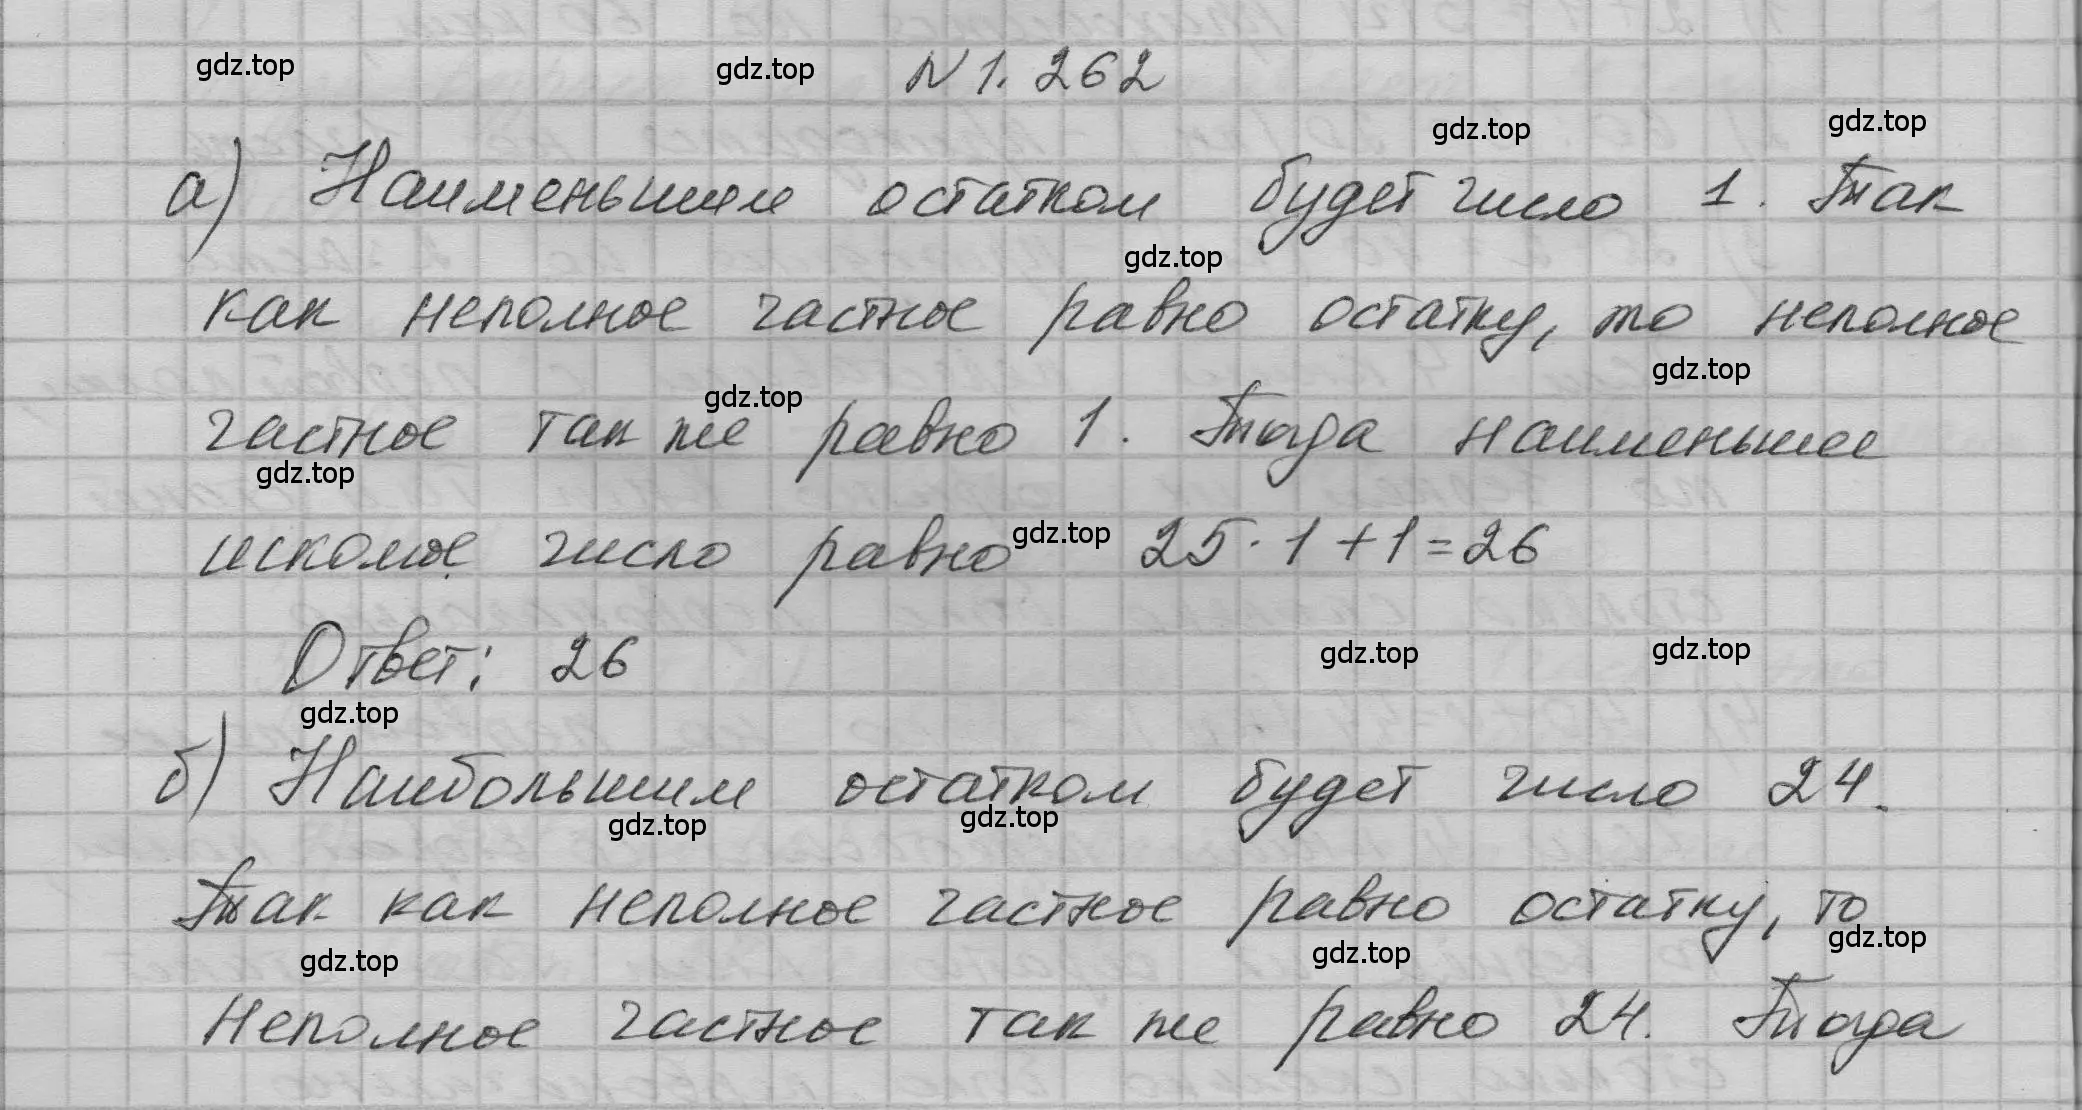 gdz.top gdz.top N 1.262
gdz.top gdz.top
а) Наименьшим остатком будет число 1. Так
gdz.top
как неполное частное равно остатку, то неполное
gdz.top gdz.top
частное так же равно 1. Тогда наименьшее
gdz.top gdz.top
искомое число равно 25·1+1=26
Ответ: 26 gdz.top gdz.top
gdz.top
б) Наибольшим остатком будет число 24.
gdz.top gdz.top
Так как неполное частное равно остатку, то
gdz.top gdz.top gdz.top
Неполное частное так же равно 24. Тогда